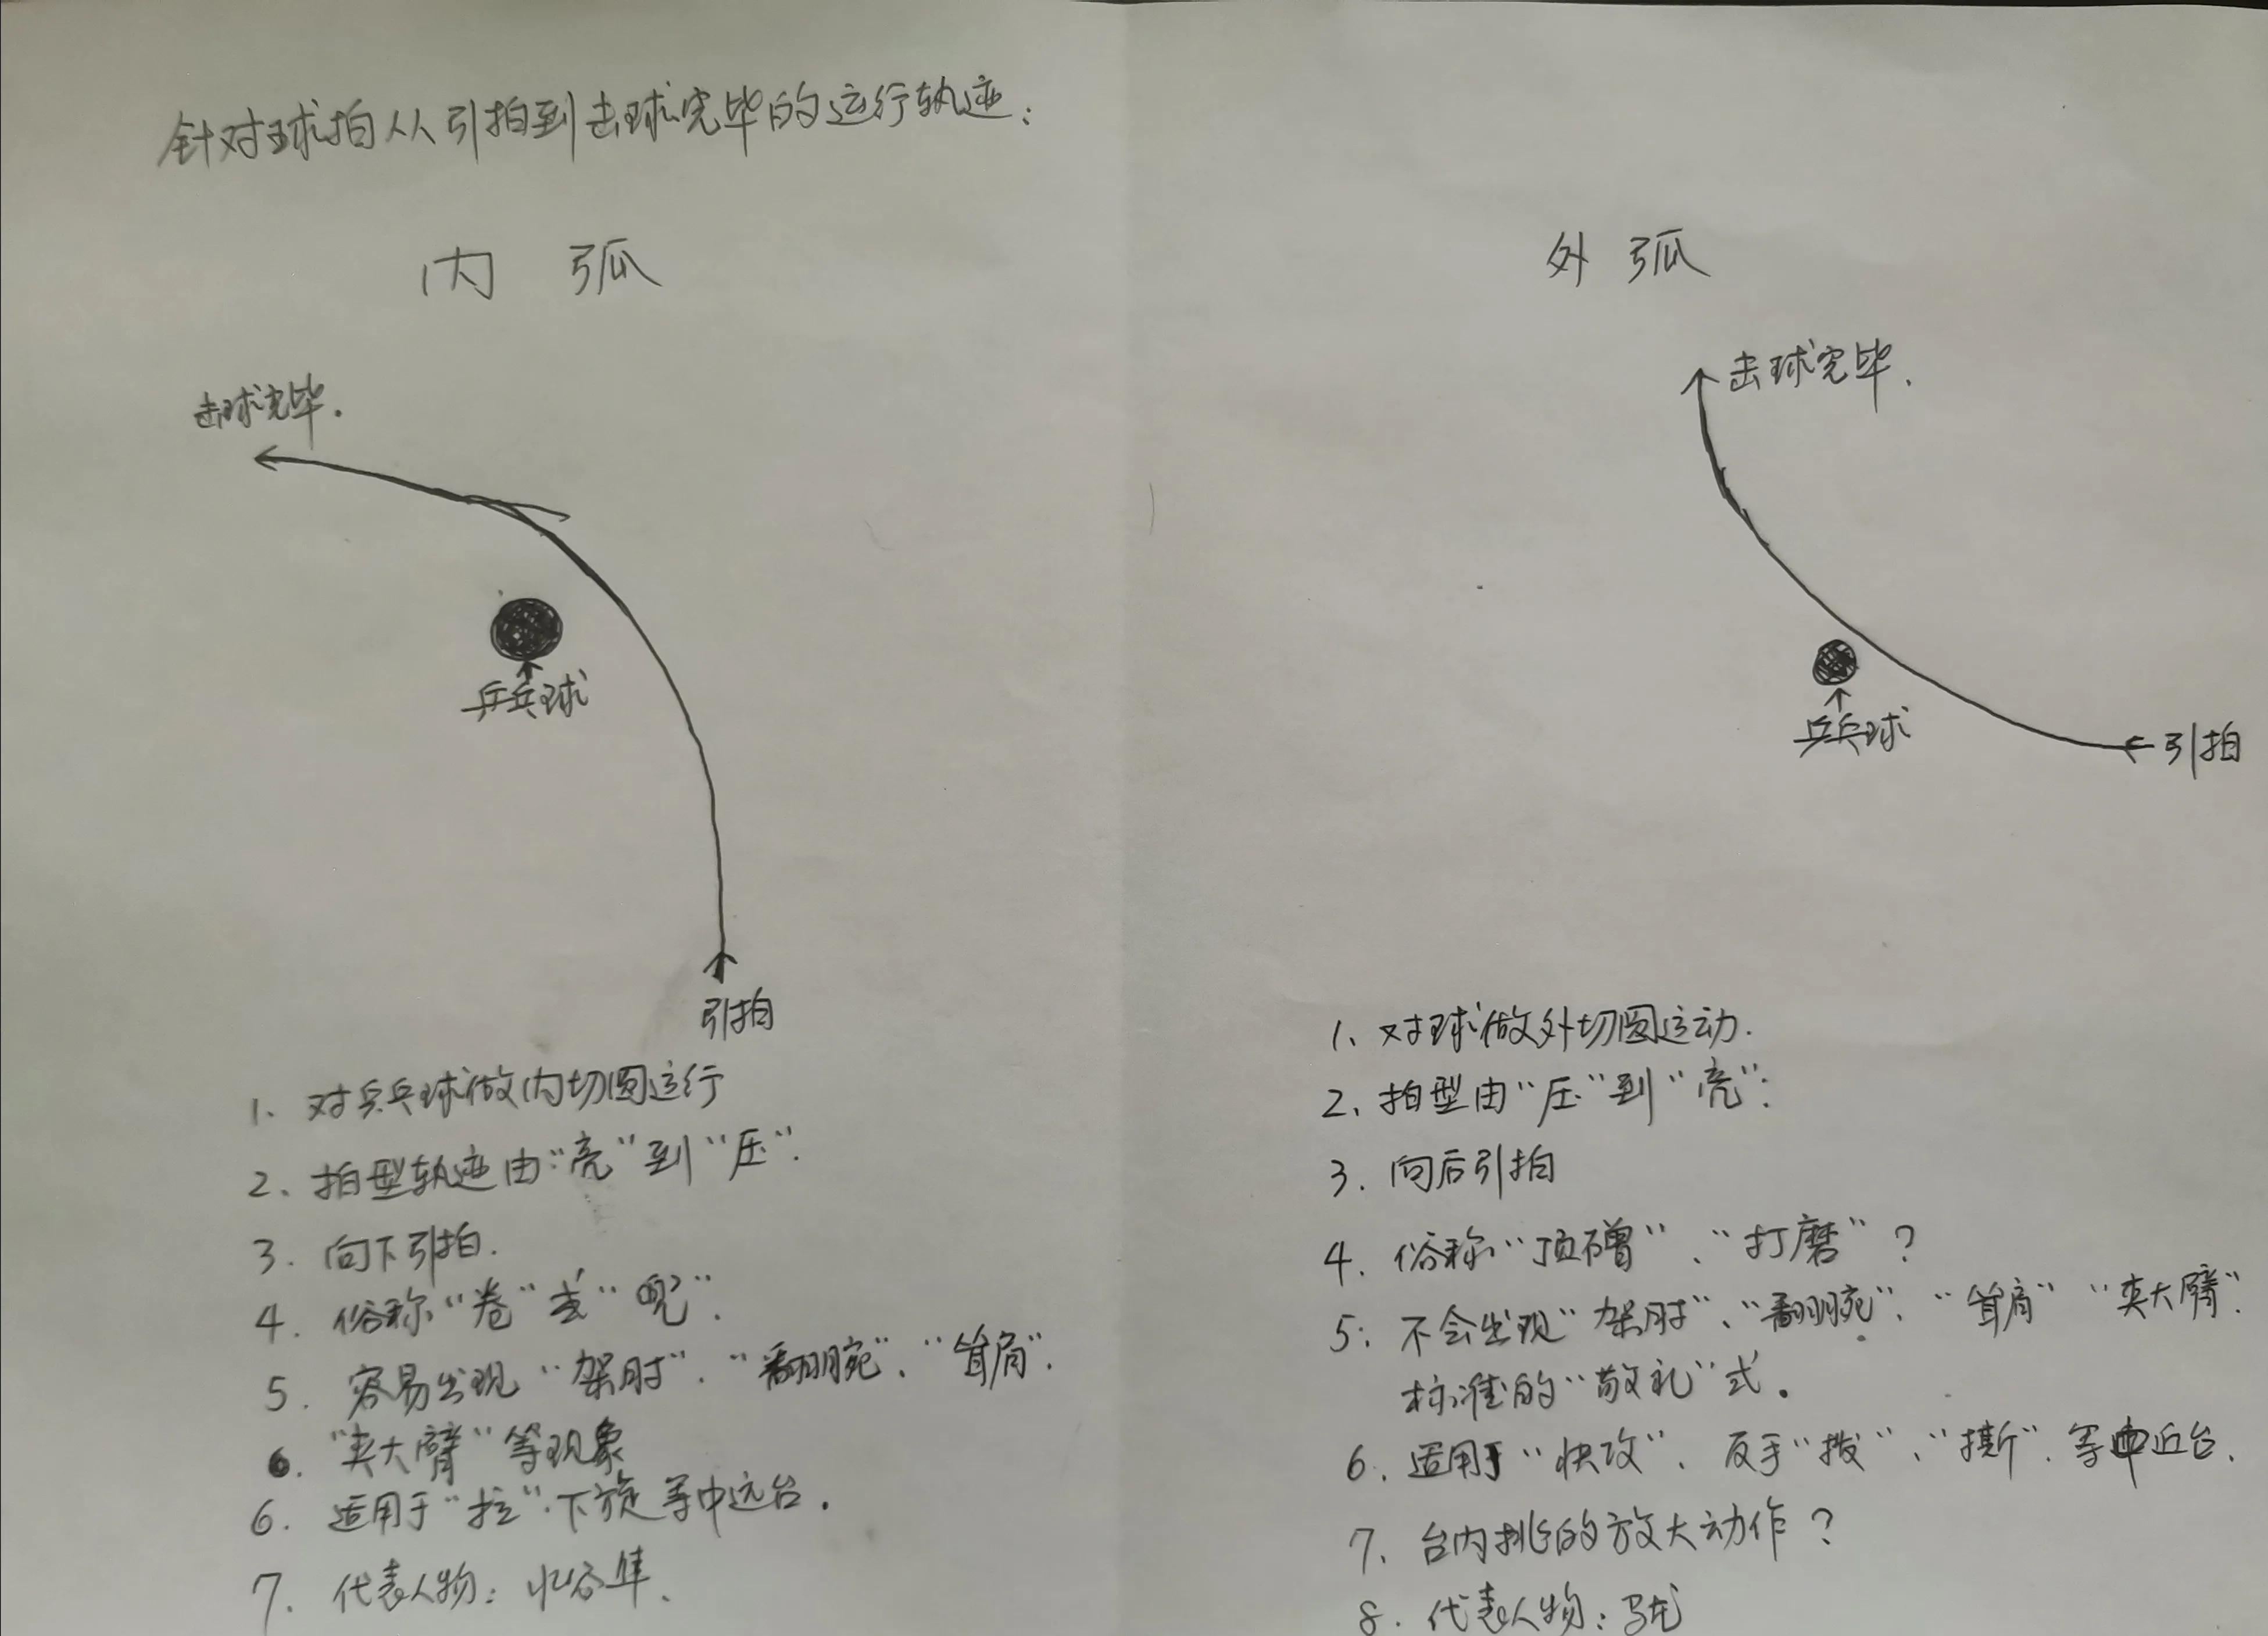 针对球拍从引拍到击球完毕的运行轨迹：
内 弧
击球完毕.
乒乓球
引拍
1、对乒乓球做内切圆运行
2、拍型轨迹由“亮”到“压”.
3. 向下引拍.
4. 俗称“卷”或“兜”.
5. 容易出现“架肘”、“翻腕”、“耸肩”.
6. “夹大臂”等现象
6. 适用于“拉”下旋等中远台.
7. 代表人物：水谷隼.
外 弧
击球完毕.
乒乓球
引拍
1、对球做外切圆运动.
2、拍型由“压”到“亮”：
3. 向后引拍
4. 俗称“顶磳”、“打磨”？
5: 不会出现“架肘”、“翻腕”、“耸肩”“夹大臂”.
标准的“敬礼”式.
6. 适用于“快攻”、反手“拨”、“撕”.等中近台.
7. 台内挑的放大动作？
8. 代表人物：马龙